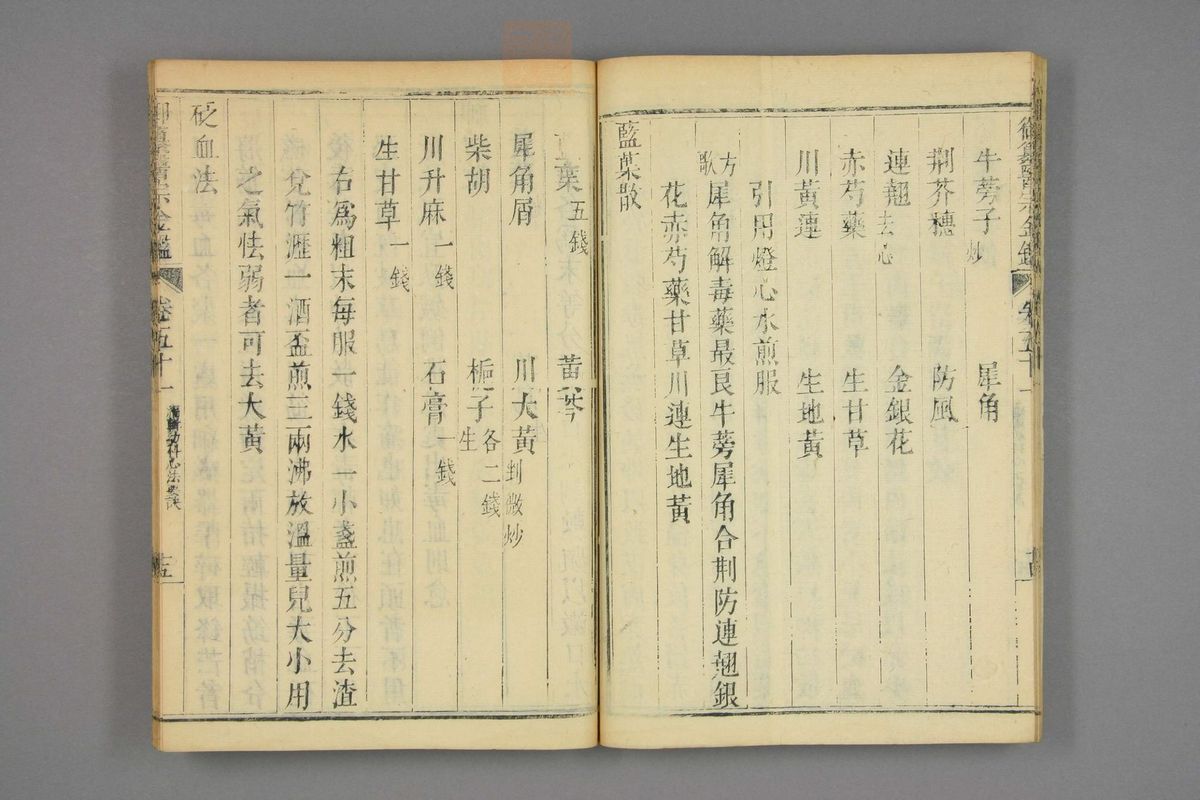 御纂醫宗金鑑 卷五十一
牛蒡子炒 犀角
荆芥穗 防風
連翹去心 金銀花
赤芍藥 生甘草
川黃連 生地黃
引用燈心水煎服
方歌 犀角解毒藥最良牛蒡犀角合荆防連翹銀
花赤芍藥甘草川連生地黃
藍葉散
葉五錢 黄芩
犀角屑 川大黄剉微炒
柴胡 梔子生各二錢
川升麻一錢 石膏一錢
生甘草一錢
右爲粗末每服一錢水一小盞煎五分去渣
兌竹瀝一酒盃煎三兩沸放溫量兒大小用
之氣怯弱者可去大黄
砭血法
御纂醫宗金鑑 卷五十一 編輯幼科心法要訣 十五